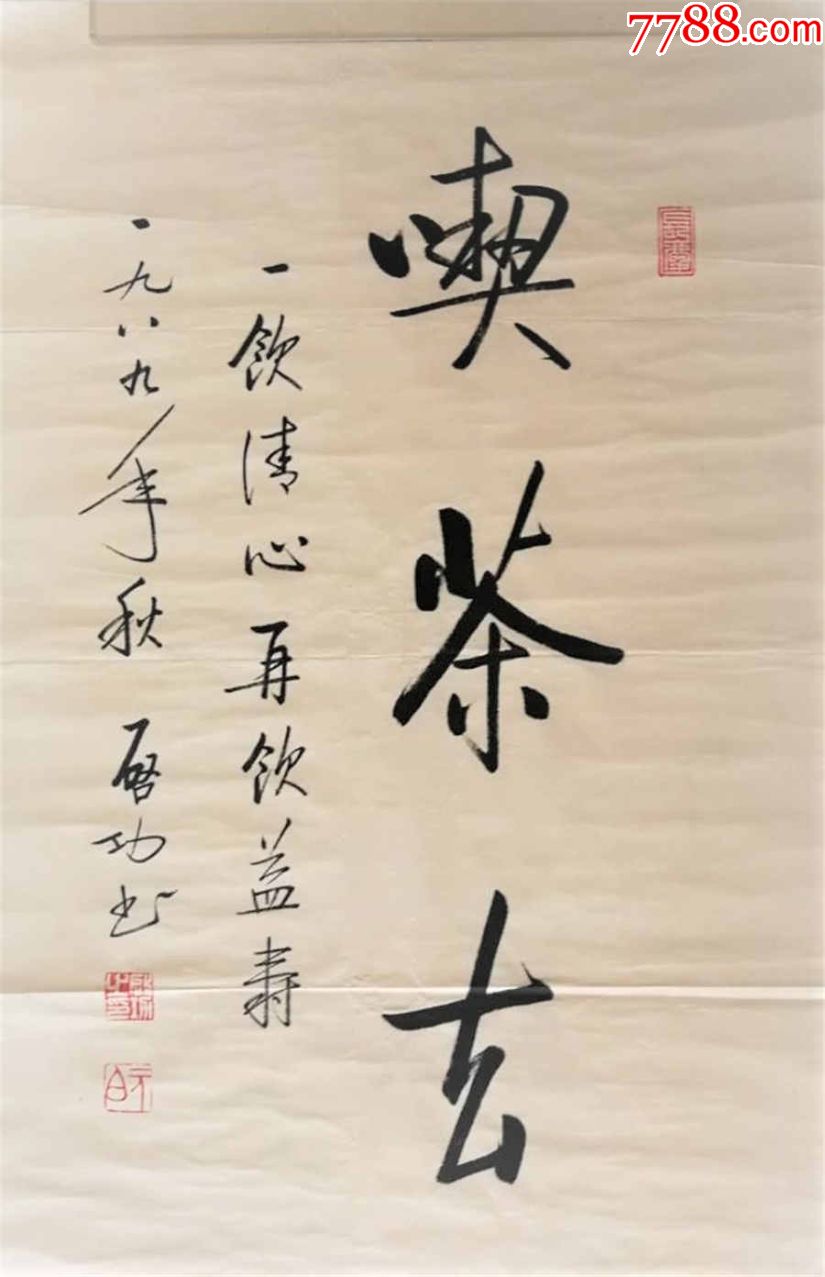 7788.com
喫茶去
一飲清心再飲益壽
一九八九年秋 啓功书